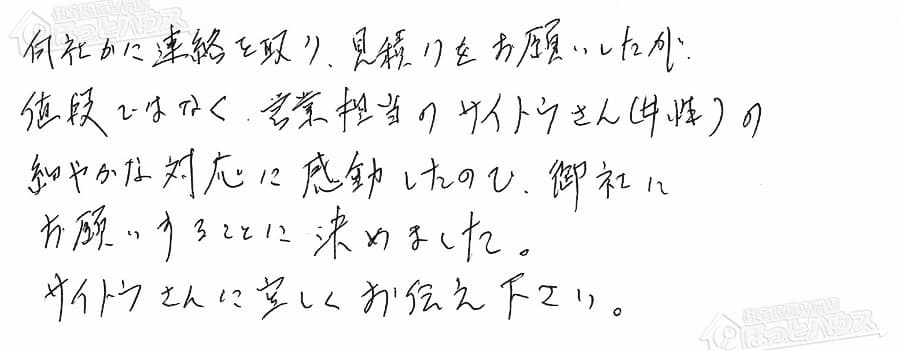 何社かに連絡を取り、見積りをお願いしたが、
値段ではなく、営業担当のサイトウさん(女性)の
細やかな対応に感動したので、御社に
お願いすることに決めました。
サイトウさんに宜しくお伝え下さい。
ほっとハウス
ほっとハウス